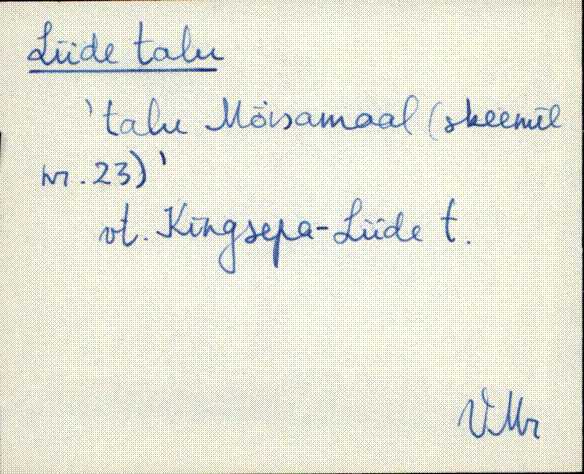 Liide talu
'talu Mõisamaal (skeemil
nr. 23)'
vt. Kingsepa-Liide t.
VMr